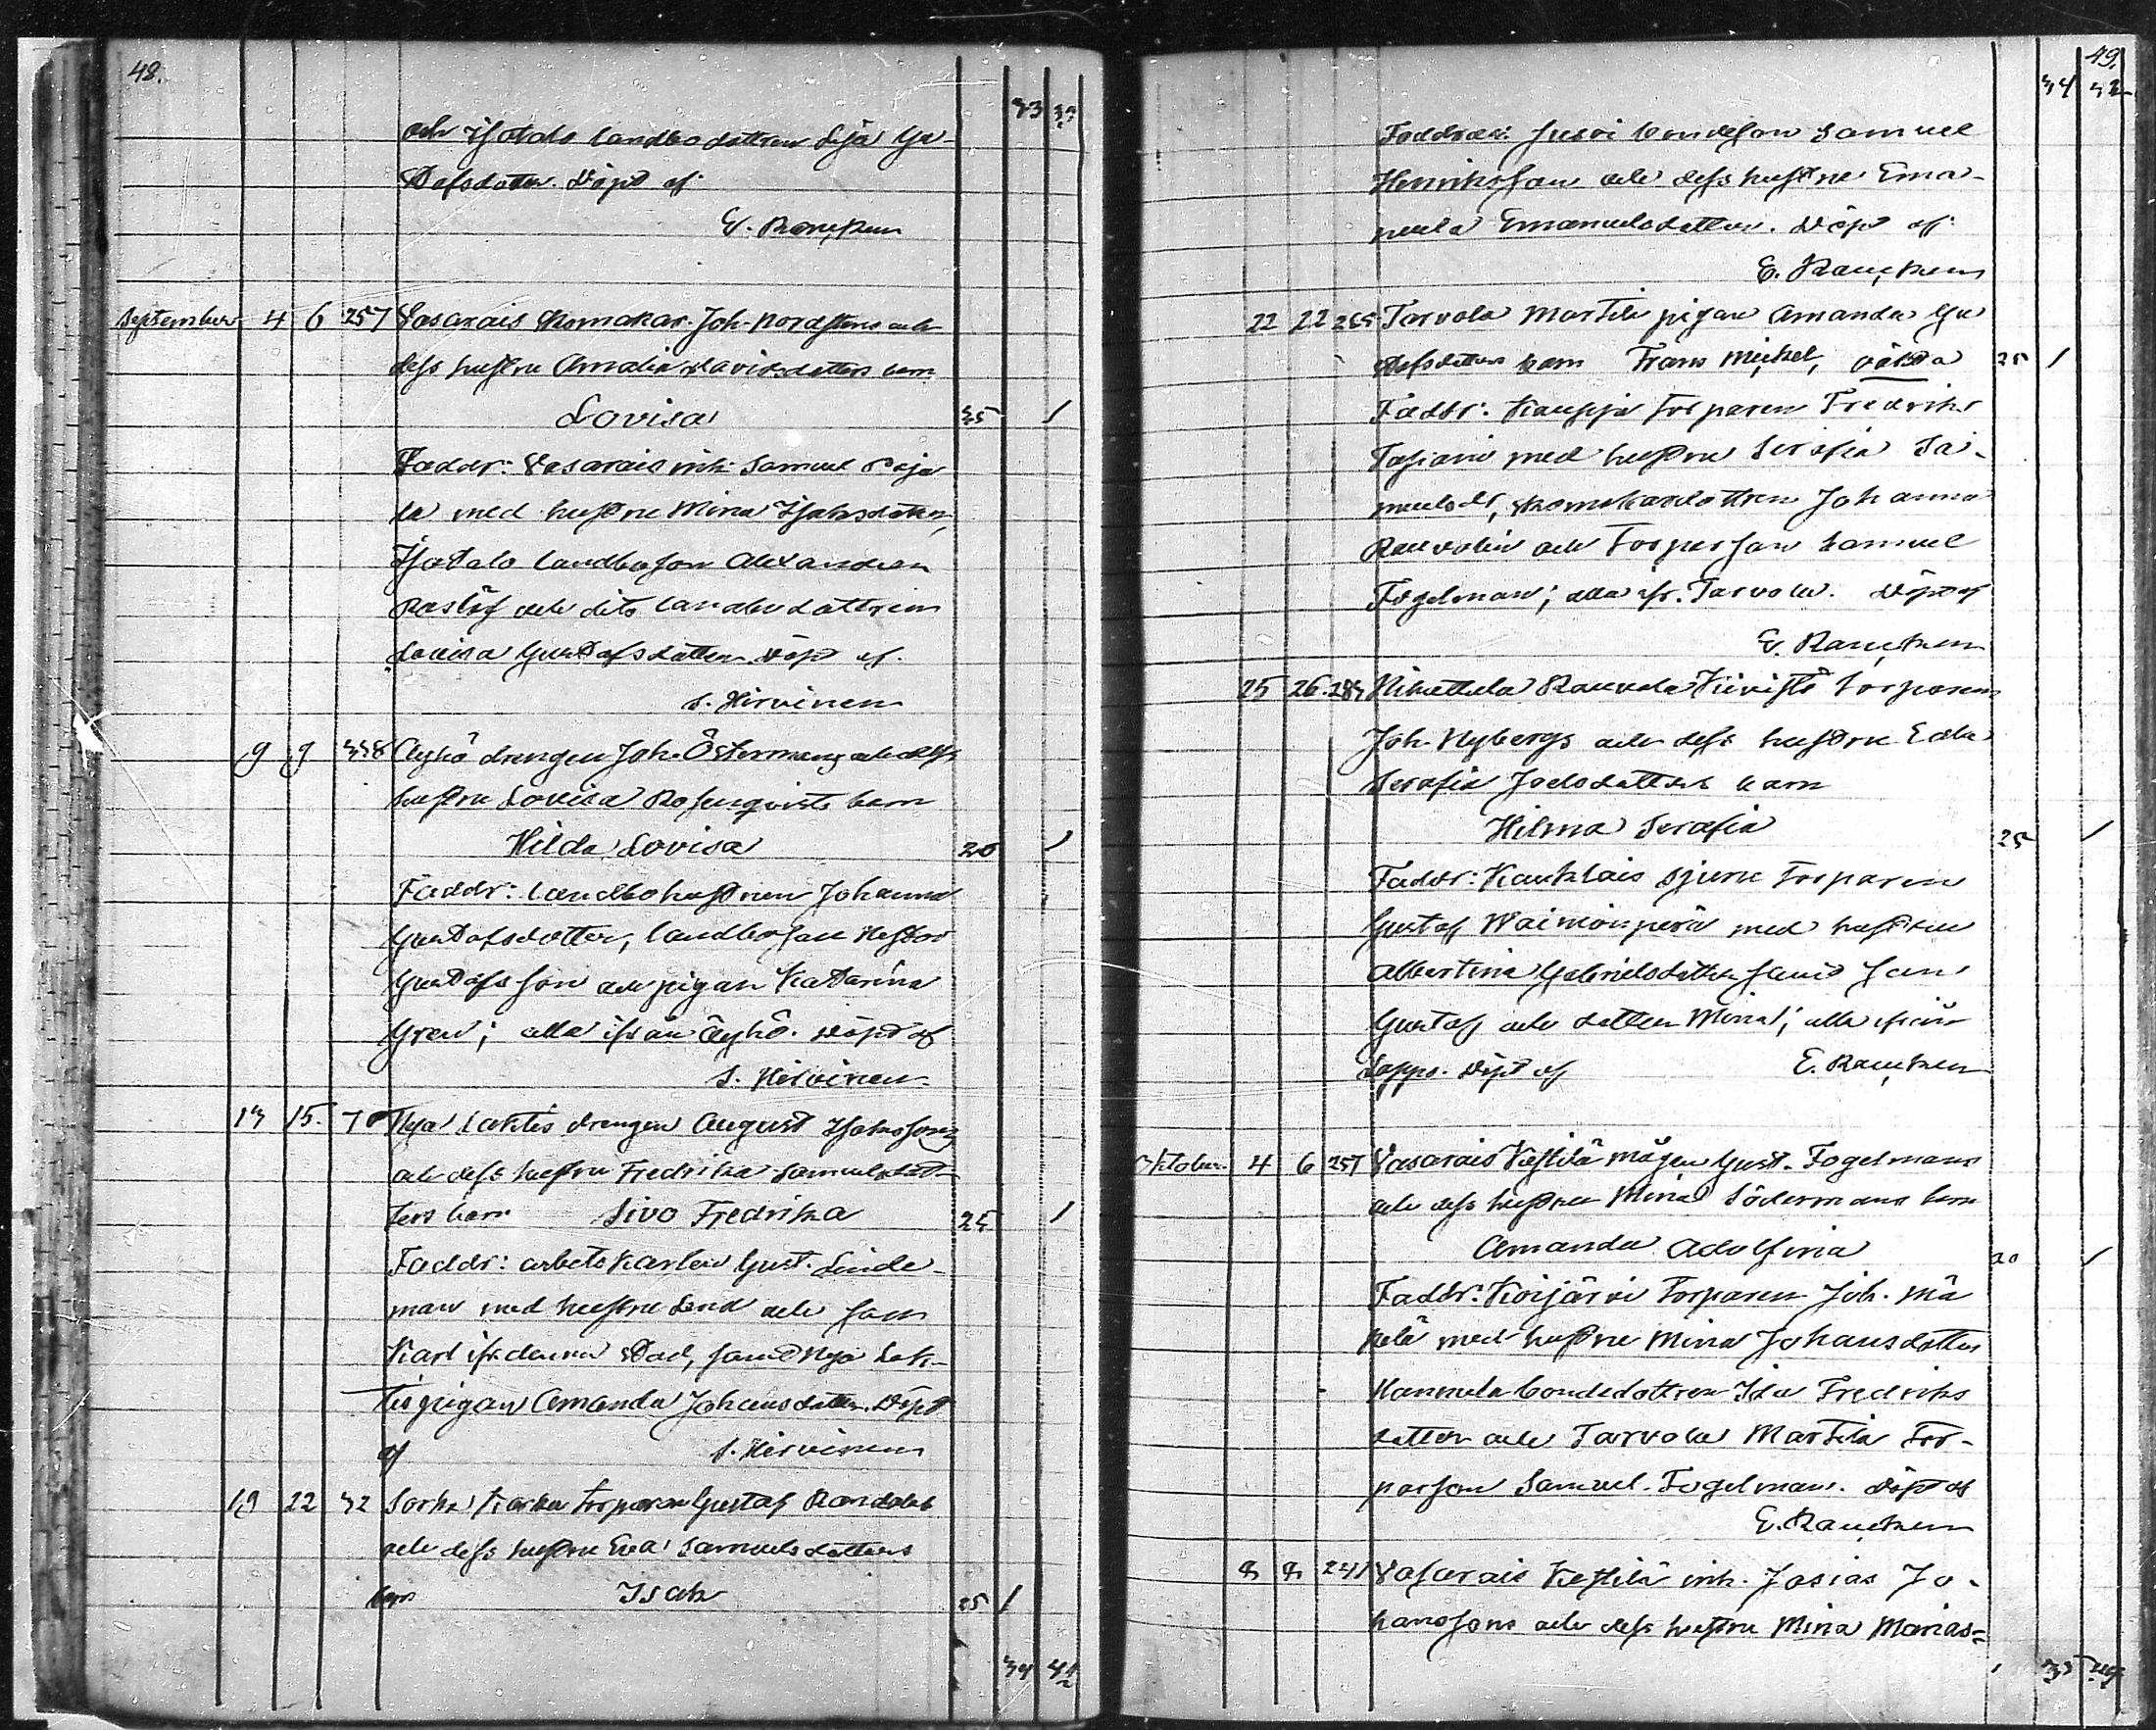 48.
33 37
och Isotalo landbodottren Lisa Gu-
stafsdotter. Döpt af
E. Rancken
September 4 6 257 Vasarais skomakar. Joh. Nordstens och
dess hustru Amalia Davidsdotters barn
Lovisa 35 1
Faddr: Vasarais inh: Samuel Paja
la med hustru Mina Isaksdotter,
Isotalo landboson Alexander
och dito landbodottren
Lovisa Gustafsdotter. Döpt af
S. Hirvinen
9 9 338 Äyhö drengen Joh. Östermans och dess
hustru Lovisa Rosenqvists barn
Hilda Lovisa 20 1
Faddr: landbohustrun Johanna
Gustafsdotter, landboson Nestor
Gustafsson och pigan Katarina
Gren; alla ifrån Äyhö. Döpt af
S. Hirvinen
13 15. 70 Nya Lahtis drengen August Isakssons
och dess hustru Fredrika Samuelsdot-
ters barn Sivo Fredrika 25 1
Faddr: arbetskarlen Gust. Linde-
man med hustru Lena och son
Karl ifr denna stad, samt Nya Lah-
tis pigan Amanda Johansdotter. Döpt
af S. Hirvinen
19 22 32 Sorka torparen Gustaf Randelas
och dess hustru Eva Samuelsdotters
barn Isak 25 1
34 41
49.
34 42
Faddrar: Jusoi bondeson Samuel
Henriksson och dess hustru Ema-
nuela Emanuelsdotter. Döpt af
E. Rancken
22 22 265 Tarvola Martila pigan Amanda Gu
stafsdotters barn Frans Mickel, oäkta 25 1
Faddr: Kauppi torparen Fredrik
med hustru Serafia Sa-
muelsdr, skomakardottren Johanna
och torparson Samuel
Fogelman; alla ifr. Tarvola. Döpt af
E. Rancken
25 26. 284 torparen
Joh. Nybergs och dess hustru Eda
Serafia Joelsdotters barn
Hilma Serafia 25 1
Faddr: Kauklais torparen
Gustaf Wainionperä med hustru
Albertina Gabrielsdotter samt son
Gustaf och dotter Mina; alla ifrån
Lappo. Döpt af E. Rancken
Oktober. 4 6 257 Vasarais Kestilä mågen Gust. Fogelmans
och dess hustru Mina Södermans barn
Amanda Adolfina 20 1
Faddr: Koijärvi torparen Joh. Mä
kelä med hustru Mina Johansdotter
Hannula bondedottren Ida Fredriks
dotter och Tarvola Martila tor-
parson Samuel Fogelman. Döpt af
E. Rancken
8 8 241 Vasarais Kestilä inh. Josias Jo-
hanssons och dess hustru Mina Marias-
35 49